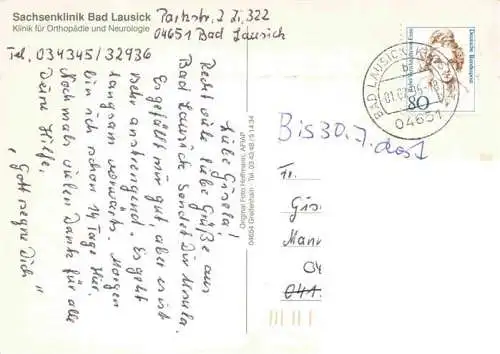 Sachsenklinik Bad Lausick
Klinik für Orthopädie und Neurologie
Parkstr. 2 Zi, 322
04651 Bad Lausick
Tel. 034345/32936
Liebe Gisela!
Recht viele liebe Grüße aus
Bad Lausick sendet Dir Ursula.
Es gefällt mir gut, aber es ist
sehr anstrengend. Es geht
langsam vorwärts. Morgen
bin ich schon 14 Tage hier.
Nochmals vielen Dank für alle
Deine Hilfe.
„Gott segne Dich“
Original Foto Hoffmann, AFIAP
04654 Greifenhain · Tel. 03 43 48 / 5 14 34
Deutsche Bundespost
80
BAD LAUSICK
04651
Bis 30.7. dort
Fr.
Gis
Mann
04
04